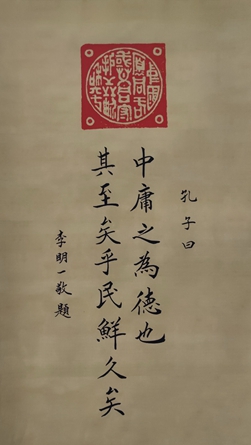 孔子曰
中庸之為德也
其至矣乎民鮮久矣
李明一敬題